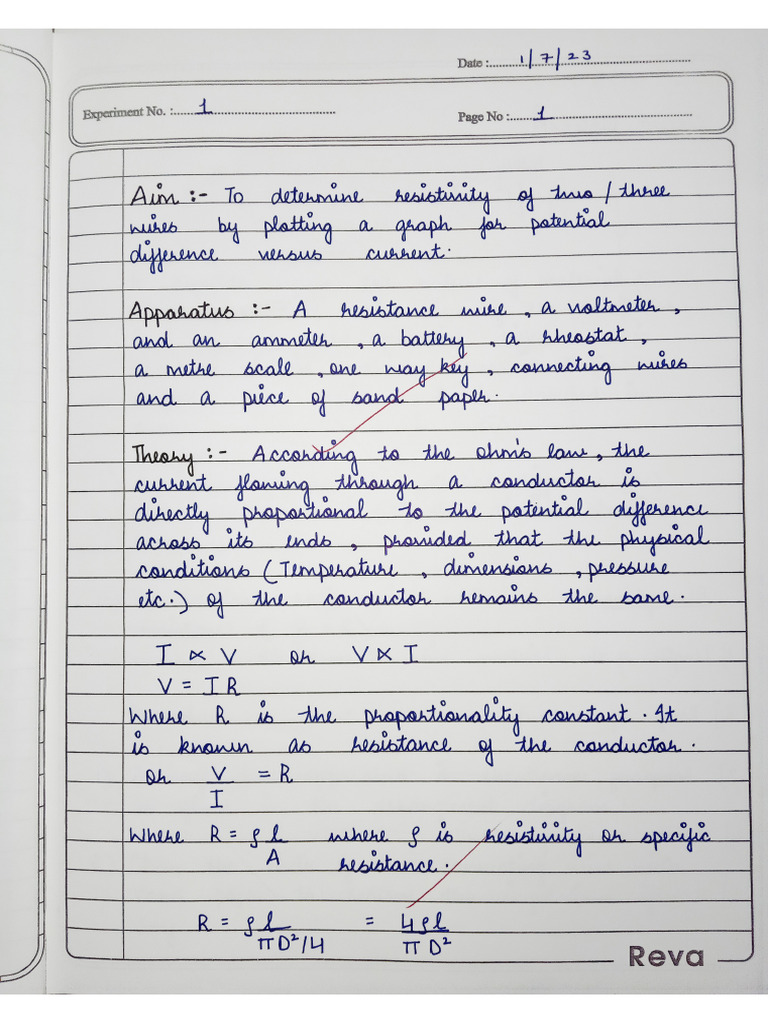 Date :.......1/7/23.......
Experiment No. :......1.......
Page No :......1.......
Aim :- To determine resistivity of two / three
wires by plotting a graph for potential
difference versus current.
Apparatus :- A resistance wire , a voltmeter ,
and an ammeter , a battery , a rheostat ,
a metre scale , one way key , connecting wires
and a piece of sand paper.
Theory :- According to the ohm's law , the
current flowing through a conductor is
directly proportional to the potential difference
across its ends , provided that the physical
conditions ( Temperature , dimensions , pressure
etc.) of the conductor remains the same.
I ∝ V or V ∝ I
V = I R
Where R is the proportionality constant. It
is known as resistance of the conductor.
or V/I = R
Where R = ρ l/A where ρ is resistivity or specific
resistance.
R = ρ l / πD²/4 = 4ρl / πD²
Reva